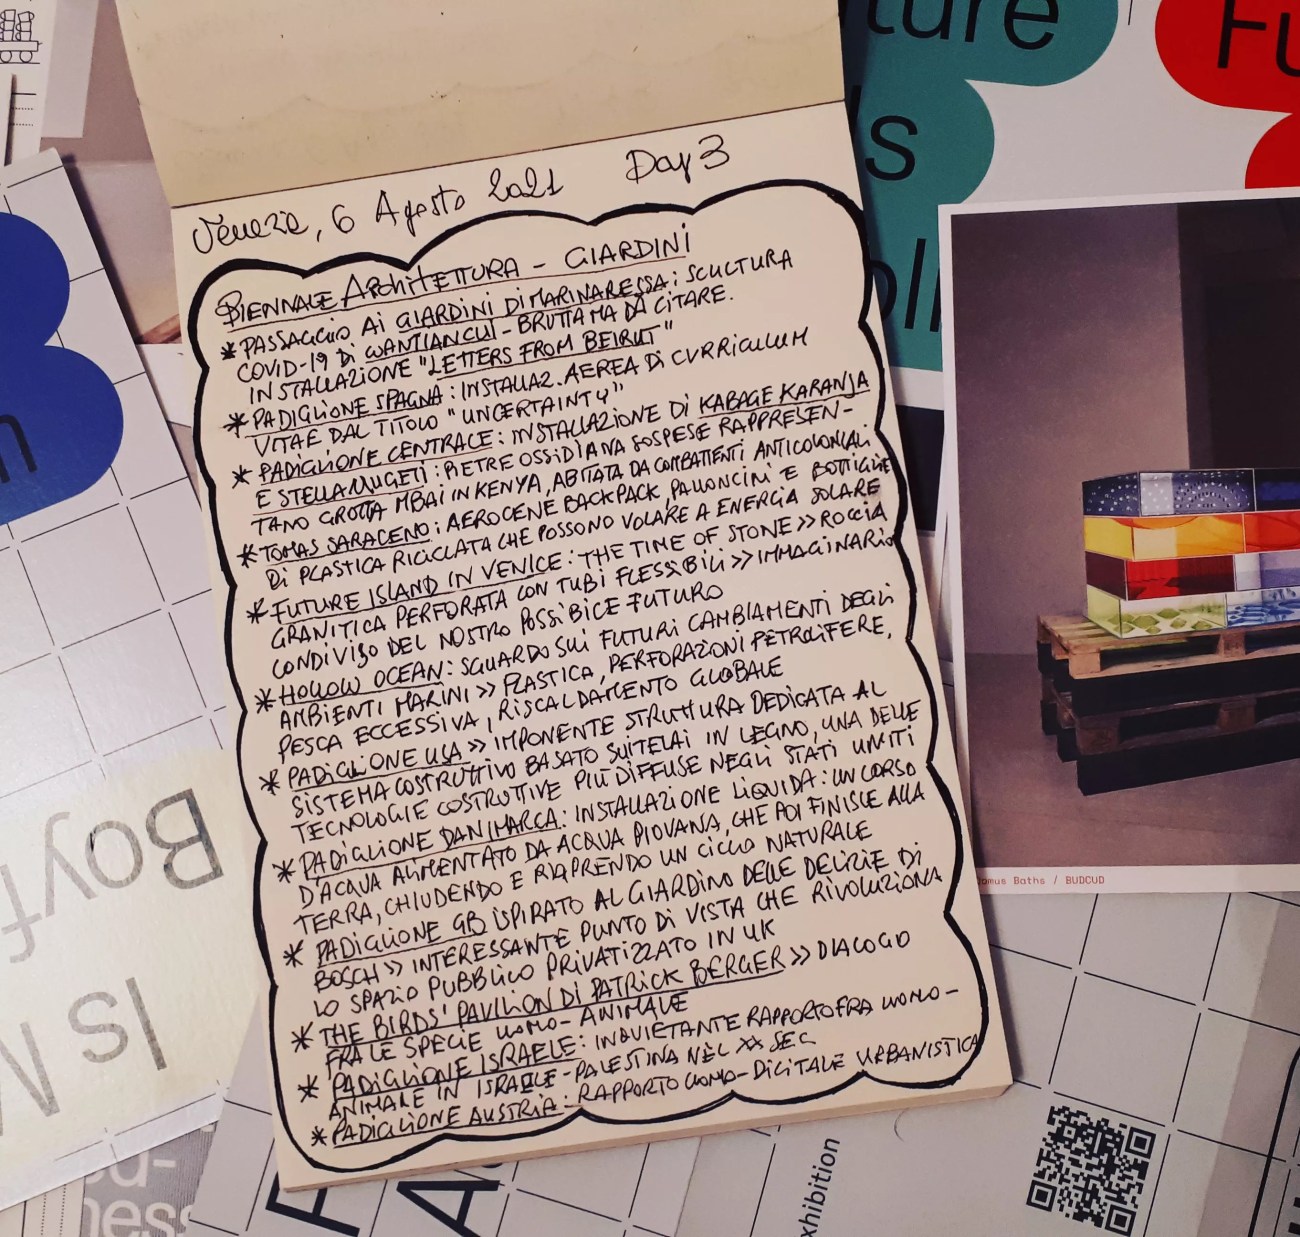 ture
Fu
s
oll
Venezia, 6 Agosto 2021 Day 3
BIENNALE ARCHITETTURA - GIARDINI
* PASSAGGIO AI GIARDINI DI MARINARESSA: SCULTURA
COVID-19 DI WANTIANCUI - BRUTTA MA DA CITARE.
INSTALLAZIONE "LETTERS FROM BEIRUT"
* PADIGLIONE SPAGNA: INSTALLAZ. AEREA DI CURRICULUM
VITAE DAL TITOLO "UNCERTAINTY"
* PADIGLIONE CENTRALE: INSTALLAZIONE DI KABAGE KARANJA
E STELLA MUGETI: PIETRE OSSIDIANA SOSPESE RAPPRESEN-
TANO GROTTA MBAI IN KENYA, ABITATA DA COMBATTENTI ANTICOLONIALI
* TOMAS SARACENO: AEROCENE BACKPACK, PALLONCINI E BOTTIGLIE
DI PLASTICA RICICLATA CHE POSSONO VOLARE A ENERGIA SOLARE
* FUTURE ISLAND IN VENICE: THE TIME OF STONE >> ROCCIA
GRANITICA PERFORATA CON TUBI FLESSIBILI >> IMMAGINARIO
CONDIVISO DEL NOSTRO POSSIBILE FUTURO
* HOLLOW OCEAN: SGUARDO SUI FUTURI CAMBIAMENTI DEGLI
AMBIENTI MARINI >> PLASTICA, PERFORAZIONI PETROLIFERE,
PESCA ECCESSIVA, RISCALDAMENTO GLOBALE
* PADIGLIONE USA >> IMPONENTE STRUTTURA DEDICATA AL
SISTEMA COSTRUTTIVO BASATO SU TELAI IN LEGNO, UNA DELLE
TECNOLOGIE COSTRUTTIVE PIÙ DIFFUSE NEGLI STATI UNITI
* PADIGLIONE DANIMARCA: INSTALLAZIONE LIQUIDA: UN CORSO
D'ACQUA ALIMENTATO DA ACQUA PIOVANA, CHE POI FINISCE ALLA
TERRA, CHIUDENDO E RIAPRENDO UN CICLO NATURALE
* PADIGLIONE GB ISPIRATO AL GIARDINO DELLE DELIZIE DI
BOSCH >> INTERESSANTE PUNTO DI VISTA CHE RIVOLUZIONA
LO SPAZIO PUBBLICO PRIVATIZZATO IN UK
* THE BIRDS' PAVILION DI PATRICK BERGER >> DIALOGO
FRA LE SPECIE UOMO-ANIMALE
* PADIGLIONE ISRAELE: INQUIETANTE RAPPORTO FRA UOMO-
ANIMALE IN ISRAELE-PALESTINA NEL XX SEC
* PADIGLIONE AUSTRIA: RAPPORTO UOMO-DIGITALE URBANISTICA
omus Baths / BUDCUD
Boyf
Is
ness
xhibition